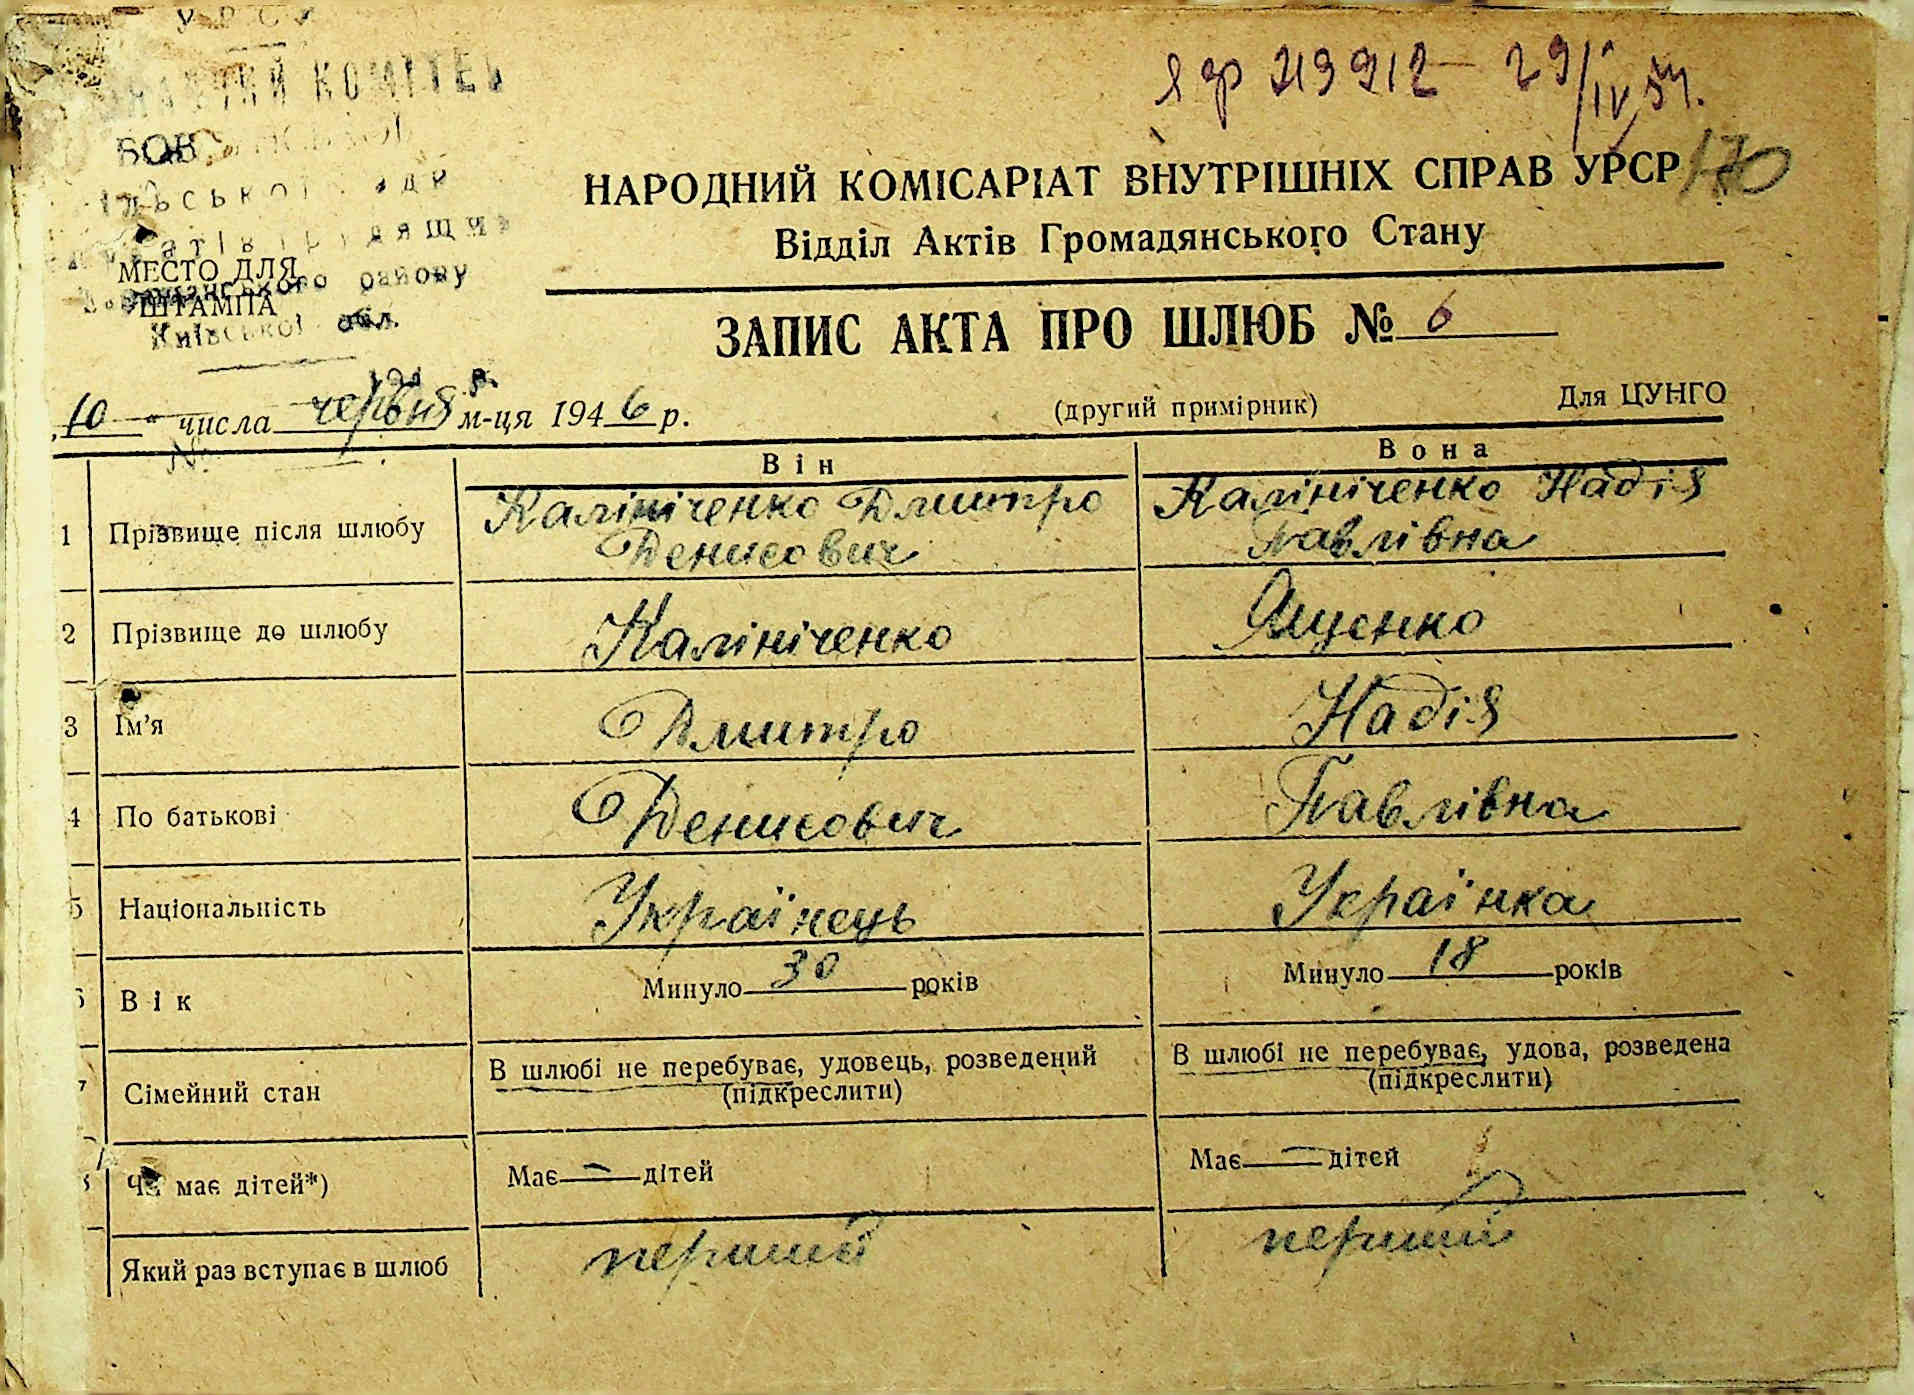 УРСР
КОМІТЕТ
МЕСТО ДЛЯ
ШТАМПА
району
Київської обл.
194 р.
№
219912 29/IV 54.
170
НАРОДНИЙ КОМІСАРІАТ ВНУТРІШНІХ СПРАВ УРСР
Відділ Актів Громадянського Стану
ЗАПИС АКТА ПРО ШЛЮБ № 6
„10" числа червня м-ця 1946 р.
(другий примірник)
Для ЦУНГО
Він
Вона
1 Прізвище після шлюбу
Калініченко Дмитро
Денисович
Калініченко Надія
Павлівна
2 Прізвище до шлюбу
Калініченко
Яценко
3 Ім'я
Дмитро
Надія
4 По батькові
Денисович
Павлівна
5 Національність
Українець
Українка
Вік
Минуло 30 років
Минуло 18 років
7 Сімейний стан
В шлюбі не перебуває, удовець, розведений
(підкреслити)
В шлюбі не перебуває, удова, розведена
(підкреслити)
Чи має дітей*)
Має — дітей
Має — дітей
Який раз вступає в шлюб
перший
перший